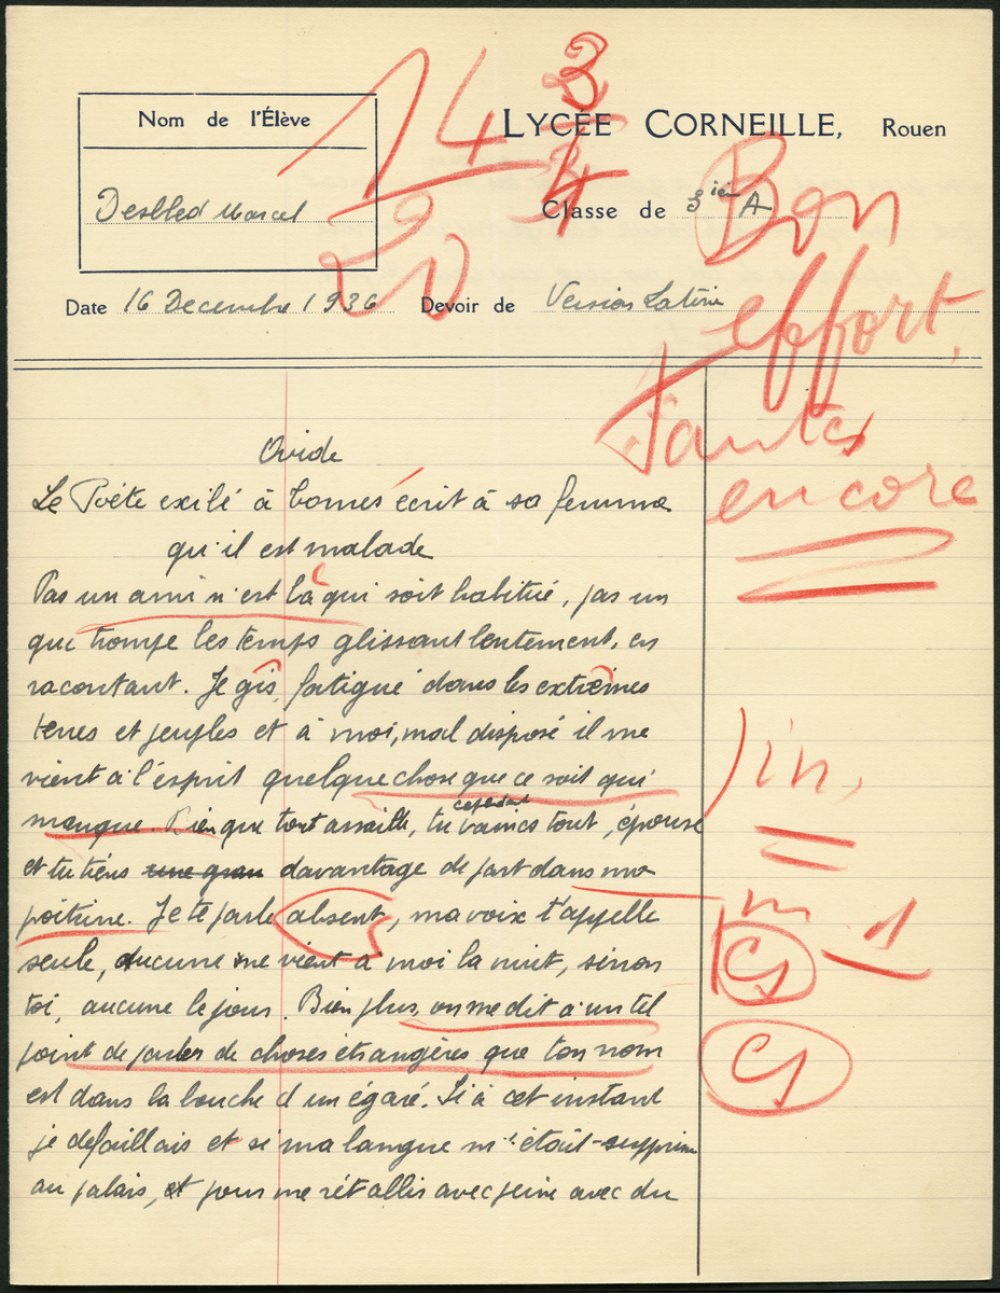 14 3/4
20
Nom de l'Élève
LYCÉE CORNEILLE, Rouen
Marcel
Classe de 3ième A
Bon
effort,
Fautes
encore
Date 16 Decembre 1936 Devoir de Version Latine
Ovide
Le Poéte exilé à Tomes écrit à sa femme
qu'il est malade
Pas un ami n'est là qui soit habitué, pas un
qui trompe les temps glissant lentement, en
racontant. Je gis, fatigué dans les extrêmes
terres et peuples et à moi, mal disposé il me
vient à l'esprit quelque chose que ce soit qui
manque. Bien que tout assaille, tu cependant vaincs tout, épouse
et tu tiens une gran davantage de part dans ma
poitrine. Je te parle absent, ma voix t'appelle
seule, aucune ne vient à moi la nuit, sinon
toi, aucune le jour. Bien plus, on me dit à un tel
point de parler de choses étrangères que ton nom
est dans la bouche d'un égaré. Si à cet instant
je defaillais et si ma langue m'était
au palais, et pour me rétablis avec peine avec du
in,
m
1
CS
CS